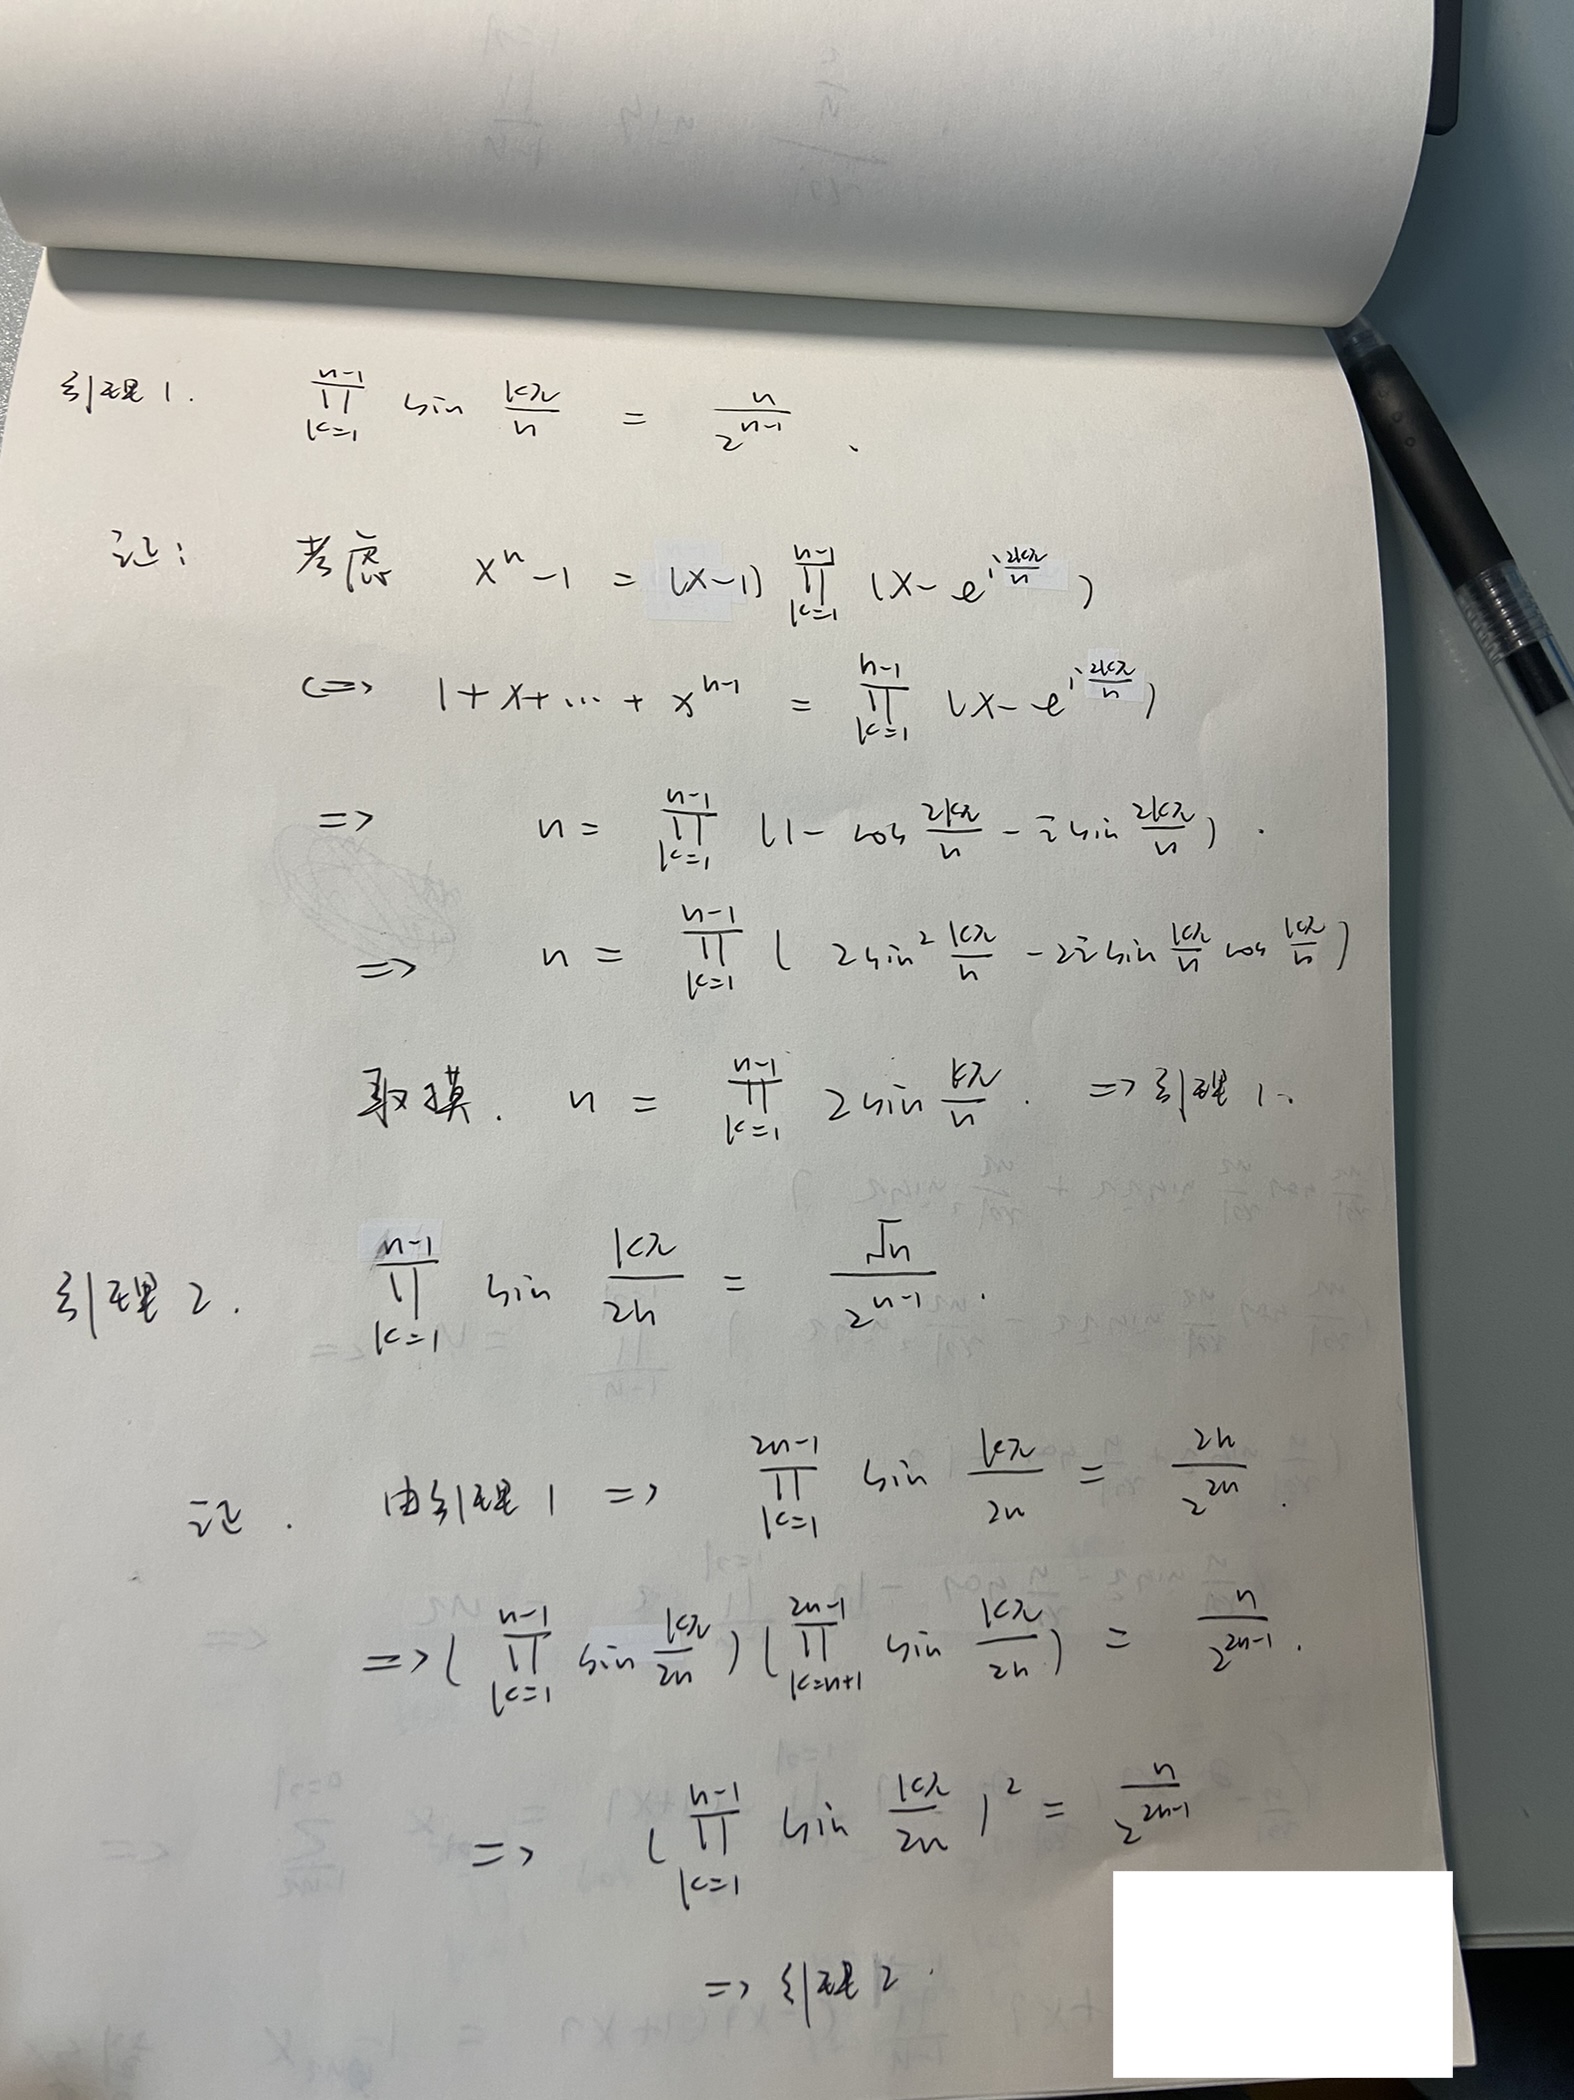 引理1. \prod_{k=1}^{n-1} \sin \frac{k\pi}{n} = \frac{n}{2^{n-1}}.
证: 考虑 x^n - 1 = (x-1) \prod_{k=1}^{n-1} (x - e^{i\frac{2k\pi}{n}})
<=> 1+x+...+x^{n-1} = \prod_{k=1}^{n-1} (x - e^{i\frac{2k\pi}{n}})
=> n = \prod_{k=1}^{n-1} (1 - \cos \frac{2k\pi}{n} - i \sin \frac{2k\pi}{n}).
=> n = \prod_{k=1}^{n-1} (2\sin^2 \frac{k\pi}{n} - 2i \sin \frac{k\pi}{n} \cos \frac{k\pi}{n})
取模. n = \prod_{k=1}^{n-1} 2\sin \frac{k\pi}{n}. => 引理1.
引理2. \prod_{k=1}^{n-1} \sin \frac{k\pi}{2n} = \frac{\sqrt{n}}{2^{n-1}}.
证. 由引理1 => \prod_{k=1}^{2n-1} \sin \frac{k\pi}{2n} = \frac{2n}{2^{2n}}.
=> (\prod_{k=1}^{n-1} \sin \frac{k\pi}{2n}) (\prod_{k=n+1}^{2n-1} \sin \frac{k\pi}{2n}) = \frac{n}{2^{2n-1}}.
=> (\prod_{k=1}^{n-1} \sin \frac{k\pi}{2n})^2 = \frac{n}{2^{2n-1}}
=> 引理2.